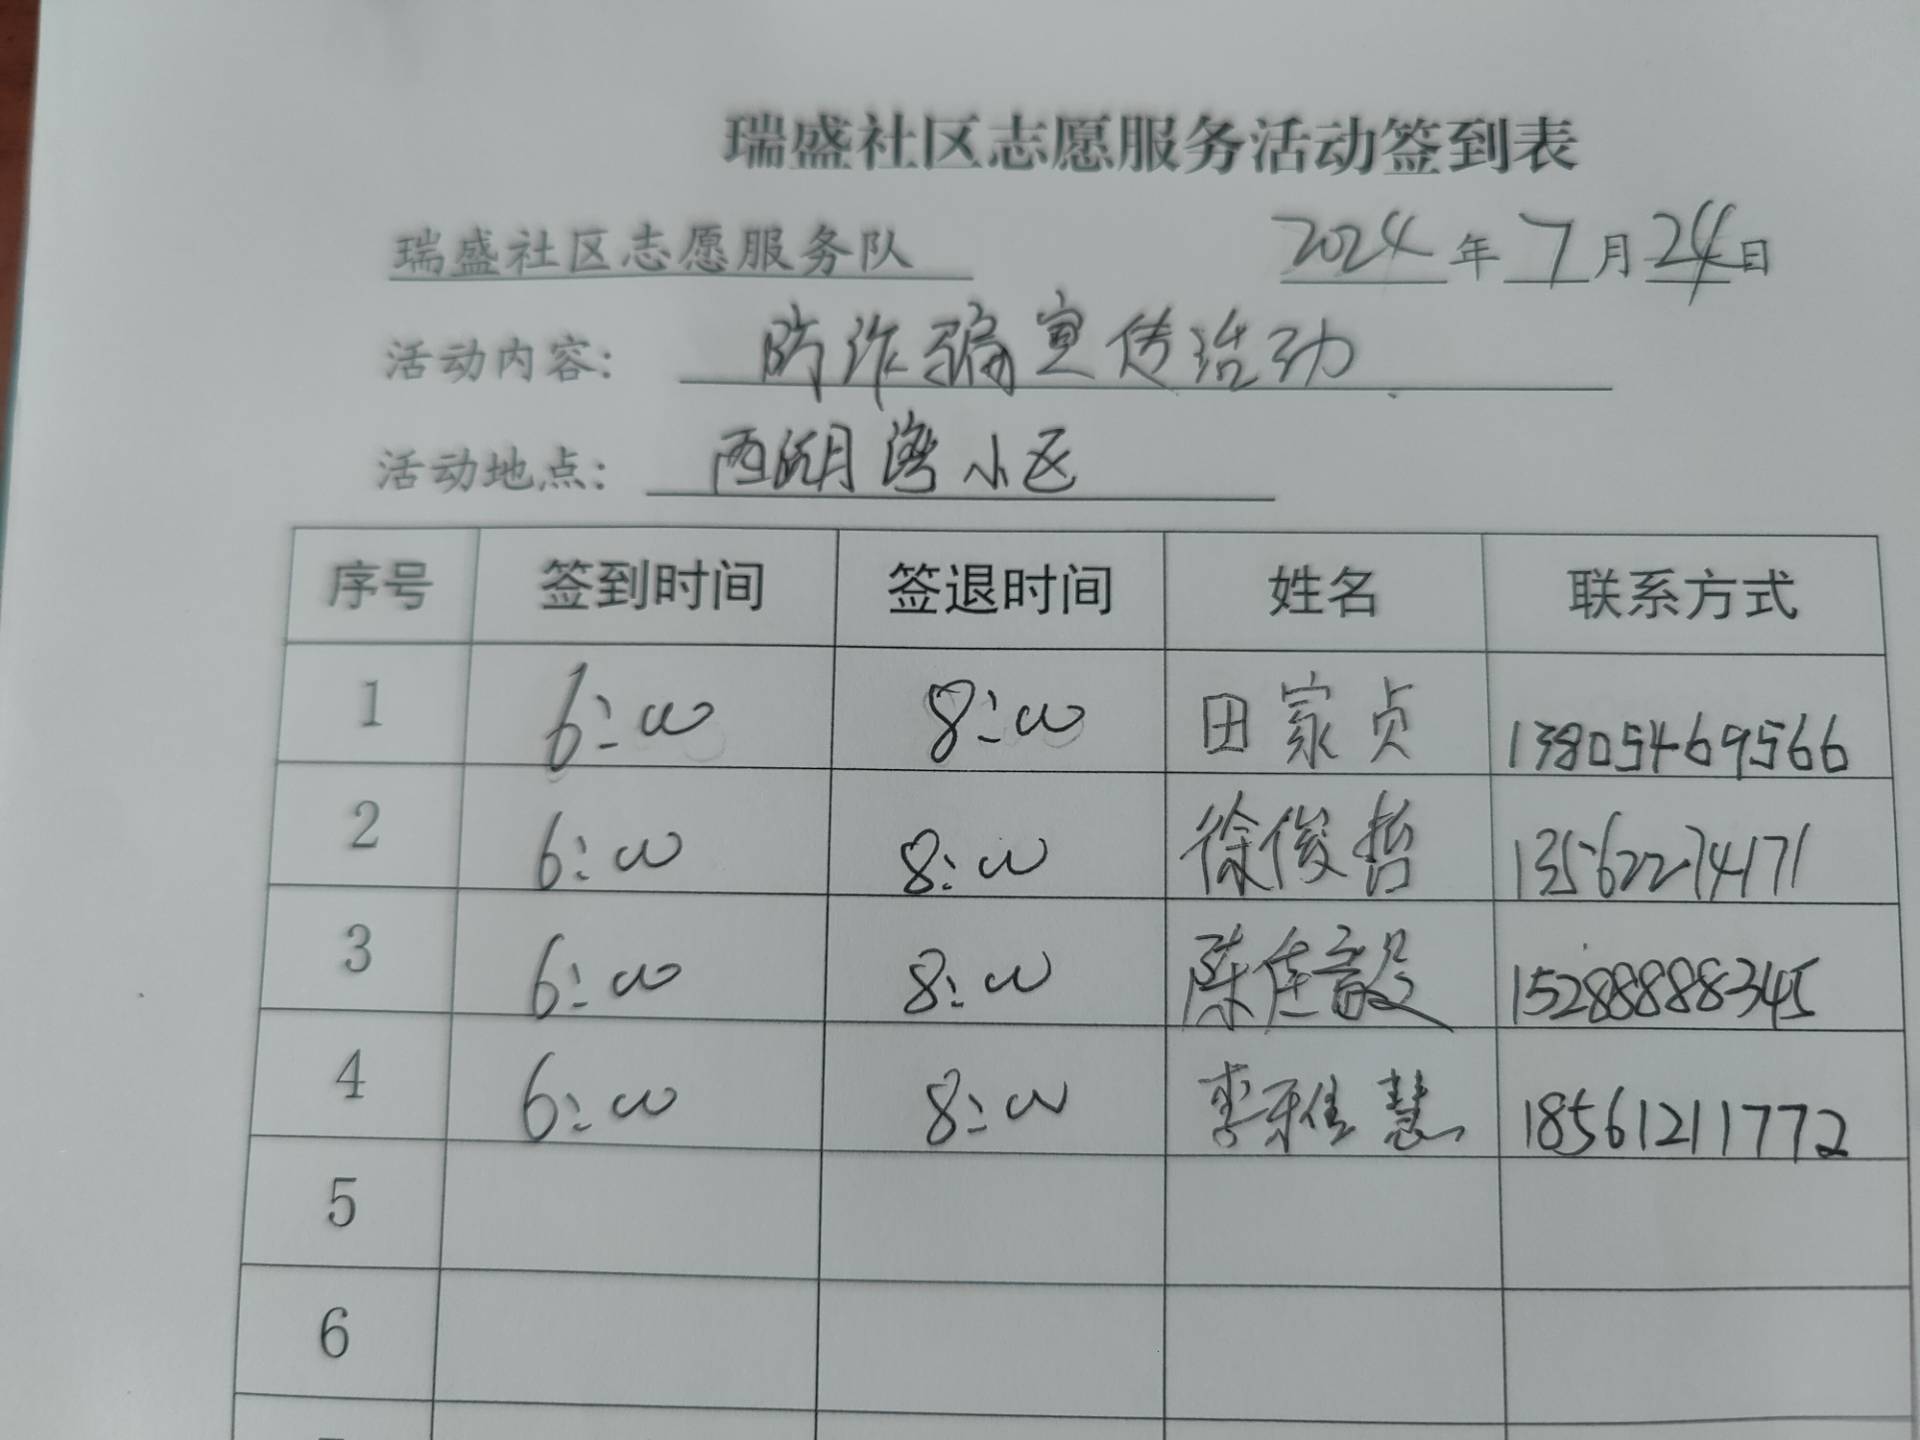 瑞盛社区志愿服务活动签到表
瑞盛社区志愿服务队 2024年7月24日
活动内容： 防诈骗宣传活动
活动地点： 西湖湾小区
序号 签到时间 签退时间 姓名 联系方式
1 6:00 8:00 田家贞 13805469566
2 6:00 8:00 徐俊哲 13562274171
3 6:00 8:00 陈佳毅 15288888345
4 6:00 8:00 李雅慧 18561211772
5
6